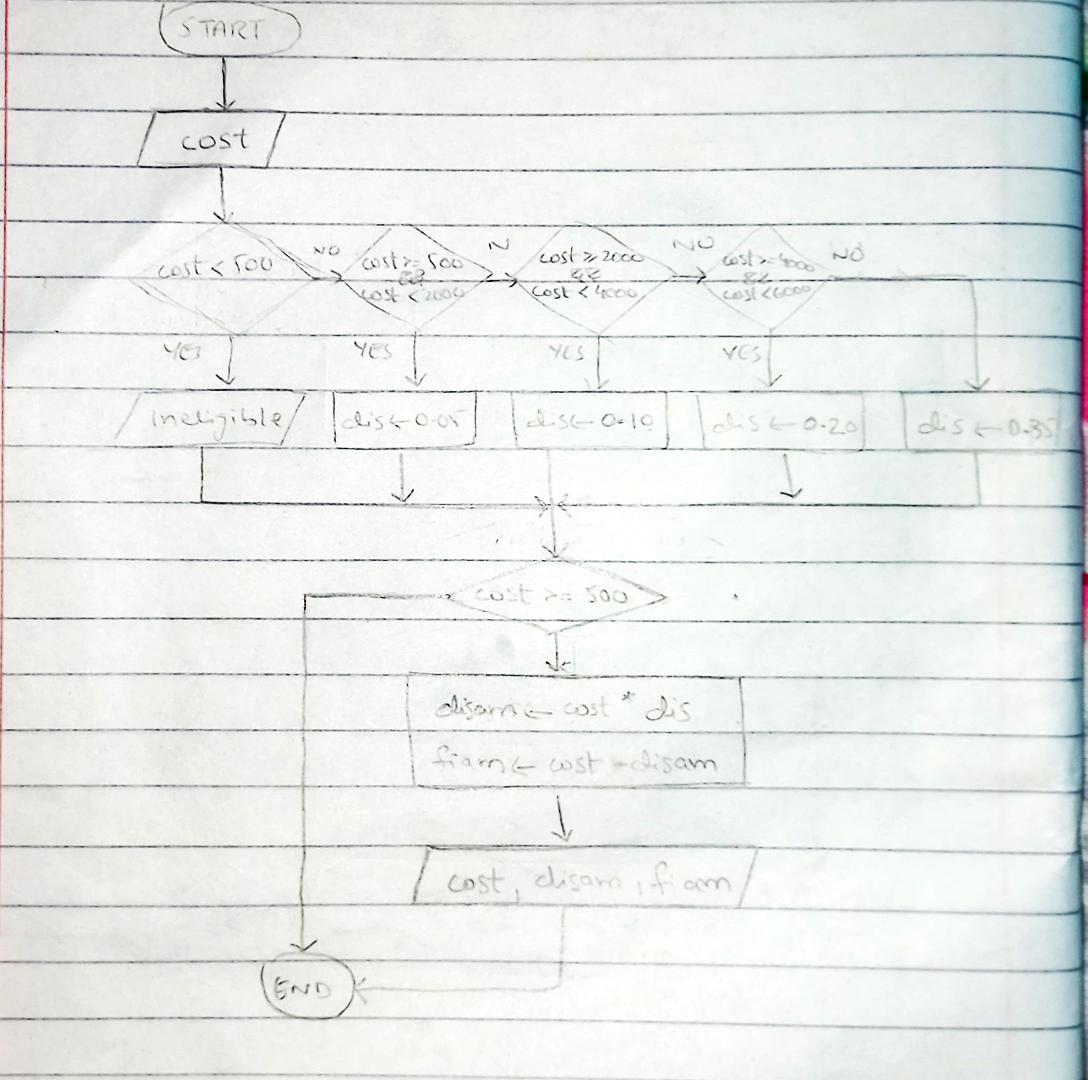 START
cost
cost < 500
NO
cost >= 500
&&
cost < 2000
N
cost ≥ 2000
&&
cost < 4000
NO
cost >= 4000
&&
cost < 6000
NO
YES
YES
YES
YES
Ineligible
dis ← 0.05
dis ← 0.10
dis ← 0.20
dis ← 0.35
cost >= 500
disam ← cost * dis
fiam ← cost - disam
cost, disam, fiam
END